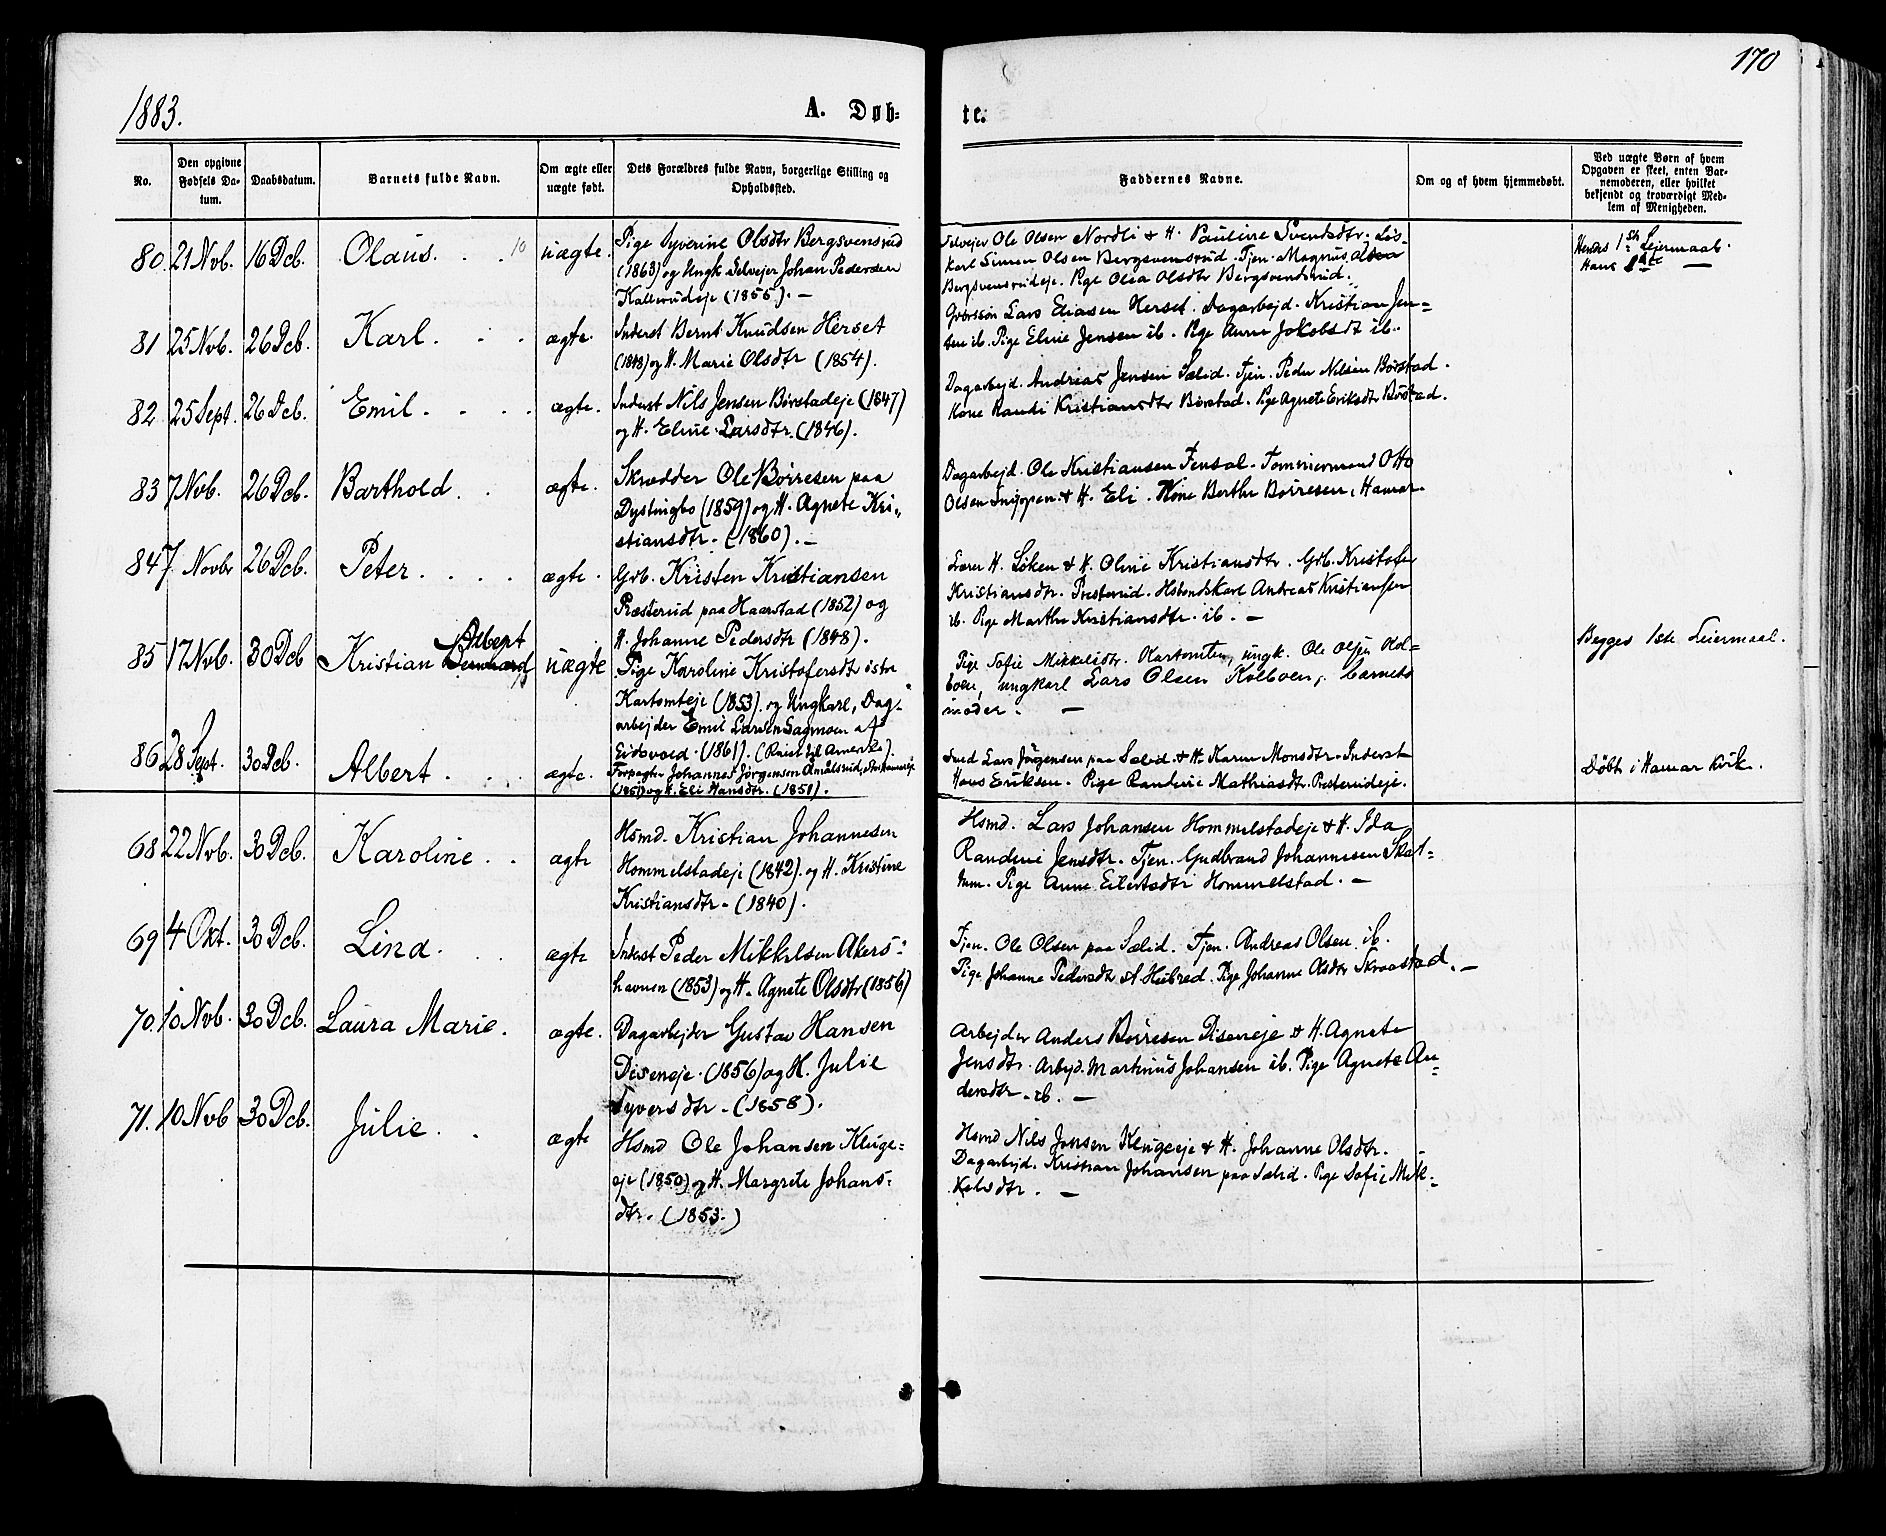 170
1883.
A. Døb-
te.
No.
Den opgivne Fødsels Da-tum.
Daabsdatum.
Barnets fulde Navn.
Om ægte eller uægte født.
Dets Forældres fulde Navn, borgerlige Stilling og Opholdssted.
Faddernes Navne.
Om og af hvem hjemmedøbt.
Ved uægte Børn af hvem Opgaven er skeet, enten Bar-nemoderen, eller hvilket bekjendt og troværdigt Med-lem af Menigheden.
80. 21 Nvb. 16 Dcb. Olaus. 10 uægte.
Pige Syverine Olsdtr Bergsvensrud
(1863) og Ungk. Selveier Johan Pedersen
Kallerudeje (1855). —
Selvejer Ole Olsen Nordli & H. Pauline Svendsdtr. Løs-
karl Simen Olsen Bergsvensrud. Tjen. Magnus Olsen
Bergsvensrudeje. Pige Olea Olsdtr Bergsvendsrud.
Hendes 1ste Leiermaal.
Hans 1ste —
81 25 Nvb. 26 Dcb. Karl. ægte.
Inderst Bernt Knudsen Herset
(1848) og H. Marie Olsdtr (1854).
Grbrssøn Lars Eliasen Herset. Dagarbejd. Kristian Jen-
sen ib. Pige Eline Jensen ib. Pige Anne Jakobsdt ib.
82 25 Sept. 26 Dcb. Emil. ægte.
Inderst Nils Jensen Børstadeje (1847)
og H. Eline Larsdtr. (1846).
Dagarbejd. Andreas Jensen Sælid. Tjen. Peder Nilsen Børstad.
Kone Randi Kristiansdtr Børstad. Pige Agnete Eriksdtr Børstad.
83 7 Nvb. 26 Dcb. Barthold. ægte.
Skrædder Ole Børresen paa
Dystingbo (1859) og H. Agnete Kri-
stiansdtr. (1860). —
Dagarbejd. Ole Kristiansen Fensal. Tømmermand Otto
Olsen Snippen & H. Eli. Kone Berthe Børresen, Hamar.
84 7. Novbr 26 Dcb. Peter. ægte.
Grb. Kristen Kristiansen
Præsterud paa Haarstad (1852) og
H. Johanne Pedersdtr (1848).
Lærer H. Løken & H. Oline Kristiansdtr. Grb. Kristofer
Kristiansdtr. Presterud. Husbondskarl Andreas Kristiansen
ib. Pige Marthe Kristiansdtr. ib. —
85 17 Nvb. 30 Dcb Kristian Bernhard Albert uægte
Pige Karoline Kristofersdtr østre
Kartomteje (1853). og Ungkarl, Dag-
arbejder Emil Larsen Sagmoen af
Eidsvold. (1861). (Reist til Amerika).
Pige Sofie Mikkelsdtr. Kartomten, ungk. Ole Olsen Kol-
boen, ungkarl Lars Olsen Kolboen, barnets
moder. —
Begges 1ste Leiermaal.
86 28 Sept. 30 Dcb. Albert. ægte.
Forpagter Johannes Jørgensen
(1851) og H. Eli Hansdtr. (1851).
Smed Lars Jørgensen paa Sælid. & H. Karen Monsdtr. Inderst
Hans Eriksen. Pige Randine Mathiasdtr. Presterudeje.
Døbt i Hamar Kirk.
68 22 Nvb. 30 Dcb. Karoline. ægte
Hsmd. Kristian Johannesen
Hommelstadeje (1842). og H. Kristine
Kristiansdtr. (1840).
Hsmd. Lars Johansen Hommelstadeje & H. Ida
Randine Jensdtr. Tjen. Gudbrand Johannesen Skat-
tum. Pige Anne Eilertsdtr Hommelstad. —
69 4 Okt. 30 Dcb. Lina. ægte
Inderst Peder Mikkelsen Akers-
havnen (1853) og H. Agnete Olsdtr (1856)
Tjen. Ole Olsen paa Sælid. Tjen. Andreas Olsen ib.
Pige Johanne Pedersdtr Hubred. Pige Johanne Olsdtr Skraastad. —
70. 10 Nvb. 30 Dcb. Laura Marie. ægte.
Dagarbejder Gustav Hansen
Diseneje. (1856) og H. Julie
Syversdtr. (1858).
Arbejder Anders Børresen Diseneje & H. Agnete
Jensdtr. Arbejd. Martinius Johansen ib. Pige Agnete An-
dersdtr. ib. —
71. 10 Nvb 30 Dcb. Julie. ægte
Hsmd Ole Johansen Kluge-
eje (1850) og H. Margrete Johans-
dtr. (1853.)
Hsmd Nils Jensen Klugeeje & H. Johanne Olsdtr.
Dagarbejd. Kristian Johansen paa Sælid. Pige Sofie Mik-
kelsdtr. —